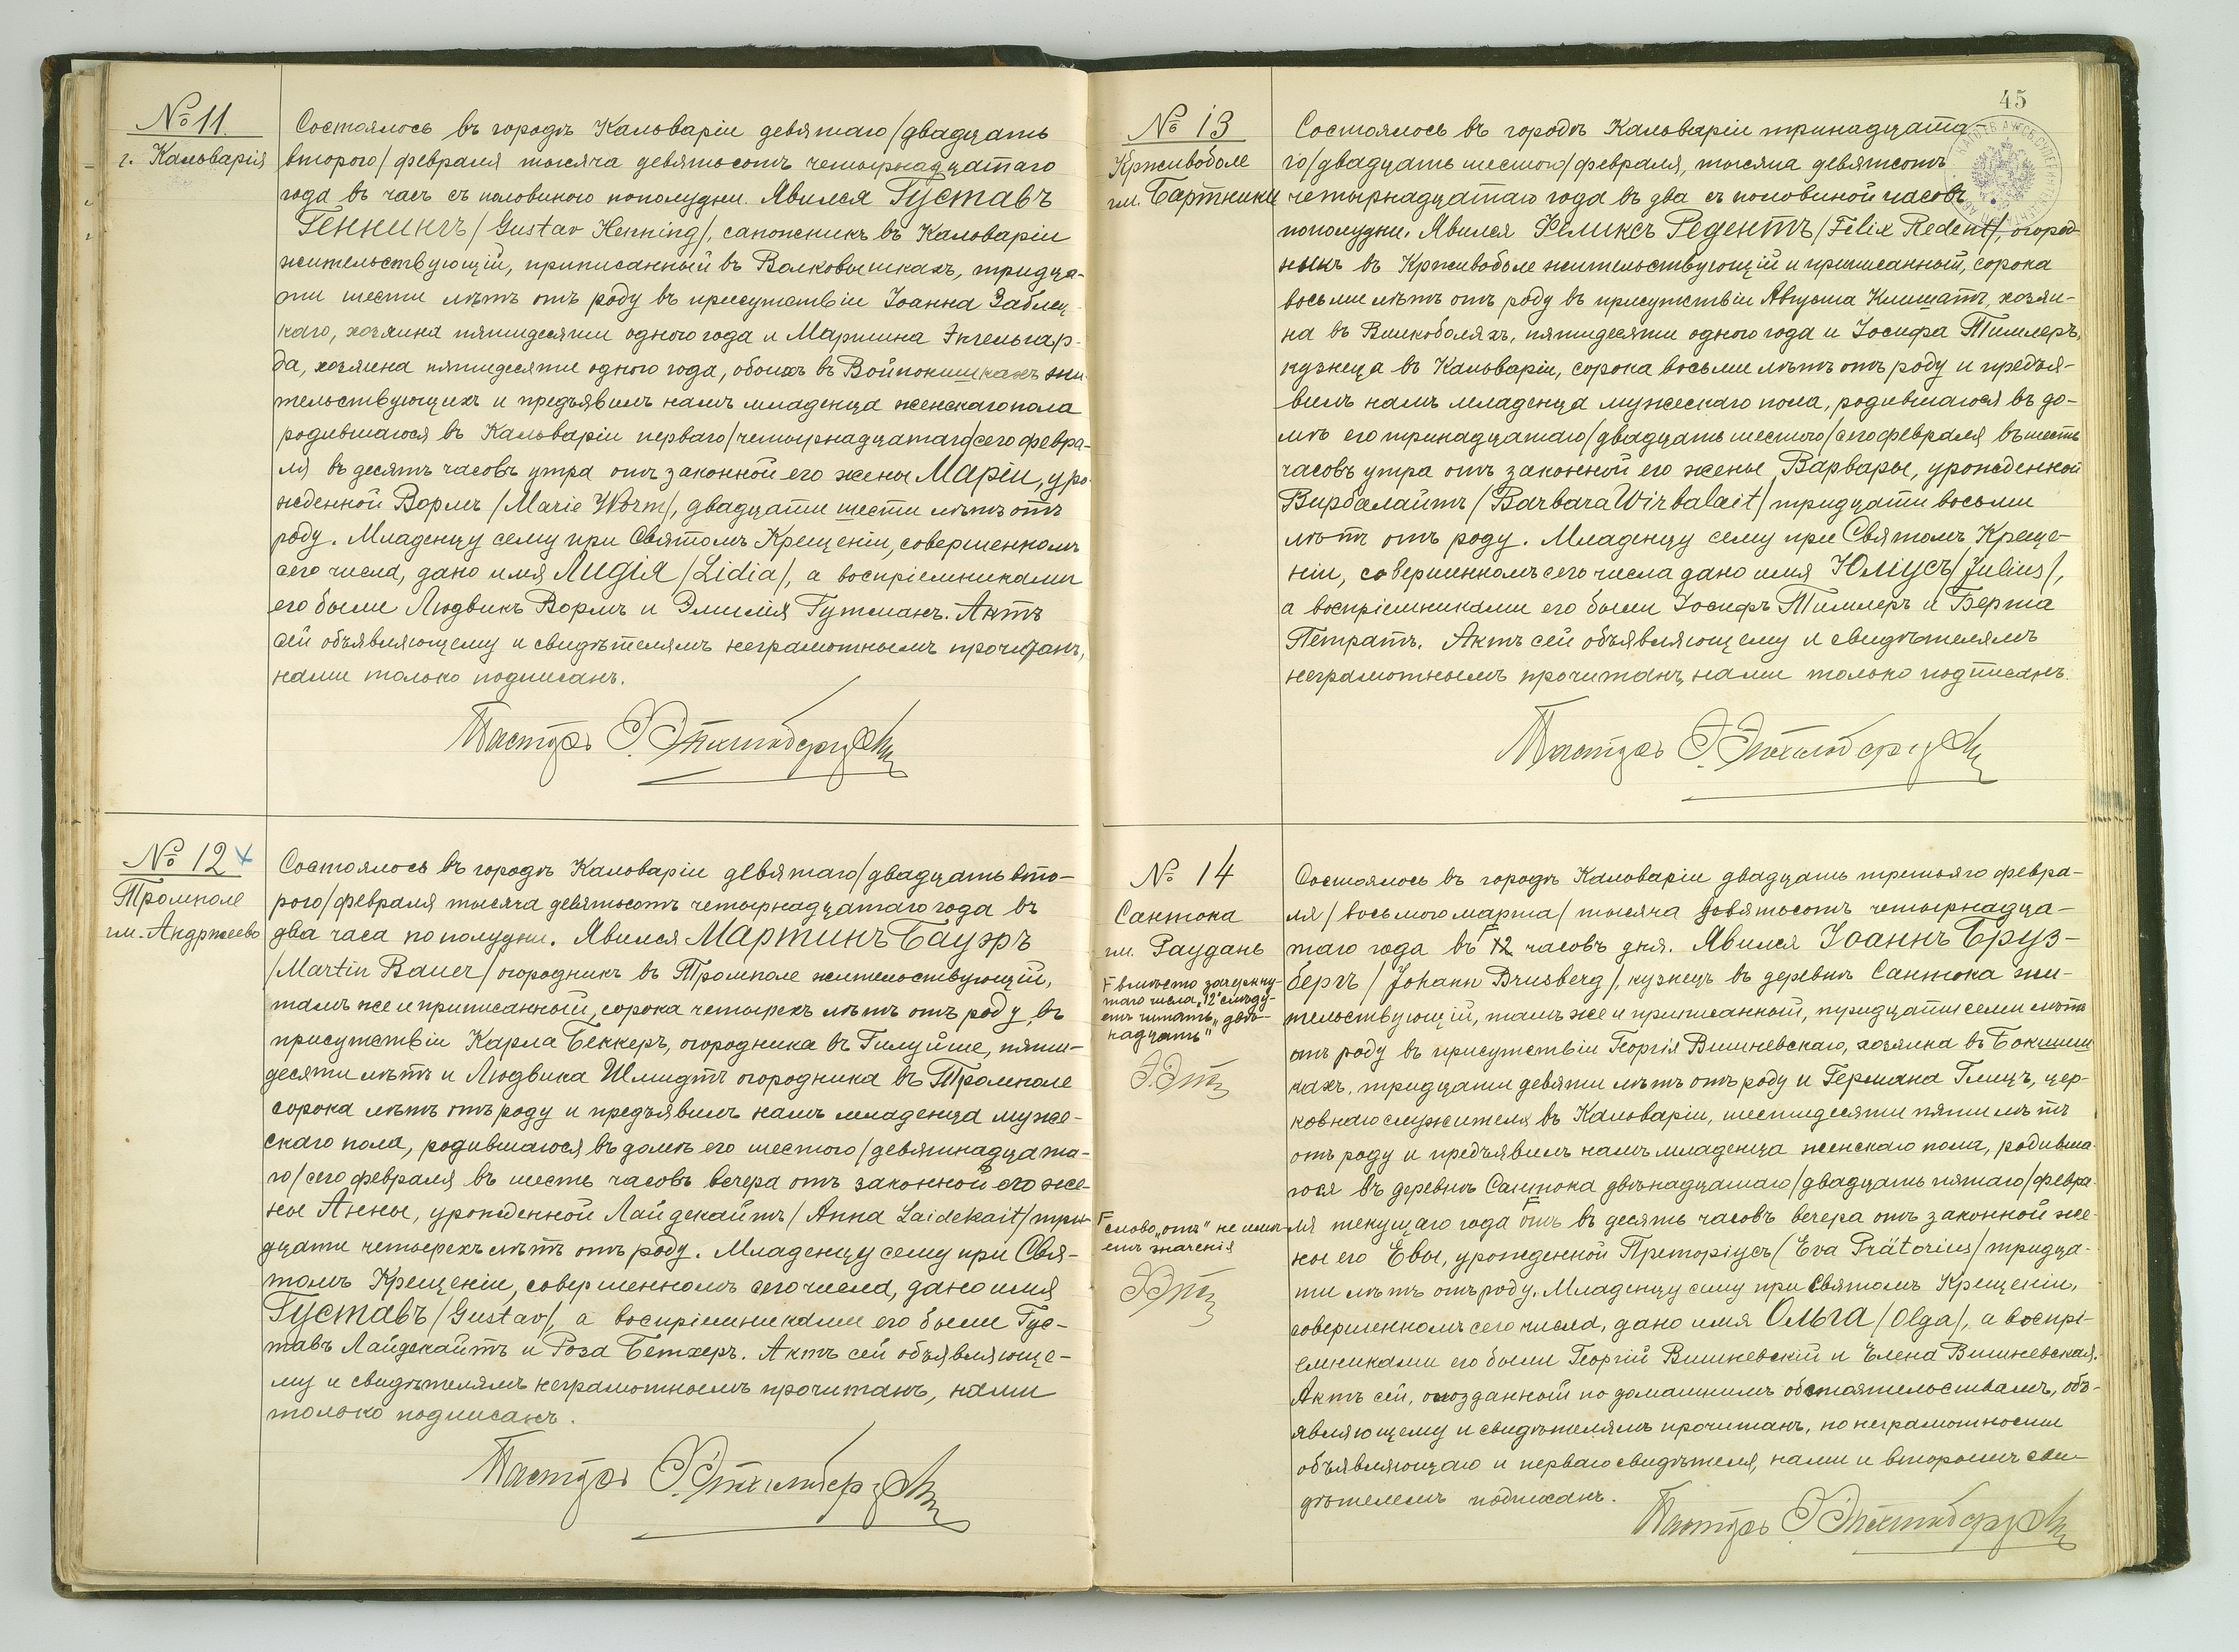 № 11.
г. Кальварія
Состоялось въ городѣ Кальваріи девятаго/двадцать
второго/февраля тысяча девятьсотъ четырнадцатаго
года въ часъ съ половиною пополудни. Явился Густавъ
Геннингъ/Gustav Henning/, сапожникъ въ Кальваріи
жительствующій, приписанный въ Волковышкахъ, тридца-
ти шести лѣтъ отъ роду въ присутствіи Іоанна Заблец-
каго, хозяина пятидесяти одного года и Мартина Энгельгар-
да, хозяина пятидесяти одного года, обоихъ въ Войпонишкахъ жи-
тельствующихъ и предъявилъ намъ младенца женскаго пола
родившагося въ Кальваріи перваго/четырнадцатаго/сего февра-
ля въ десять часовъ утра отъ законной его жены Маріи, уро-
жденной Вормъ/Marie Worm/, двадцати шести лѣтъ отъ
роду. Младенцу сему при Святомъ Крещеніи, совершенномъ
сего числа, дано имя Лидія/Lidia/, а воспріемниками
его были Людвикъ Вормъ и Эмилія Гутманъ. Актъ
сей объявляющему и свидѣтелямъ неграмотнымъ прочитанъ,
нами только подписанъ.
Пасторъ
№ 12
Тромполе
гм. Андржеево
Состоялось въ городѣ Кальваріи девятаго/двадцать вто-
рого/февраля тысяча девятьсотъ четырнадцатаго года въ
два часа пополудни. Явился Мартинъ Бауэръ
/Martin Bauer/огородникъ въ Тромполе жительствующій,
тамъ же и приписанный, сорока четырехъ лѣтъ отъ роду, въ
присутствіи Карла Беккеръ, огородника въ Гилуйше, пяти-
десяти лѣтъ и Людвика Шмидтъ огородника въ Тромполе
сорока лѣтъ отъ роду и предъявилъ намъ младенца муже-
скаго пола, родившагося въ домѣ его шестого/девятнадцата-
го/сего февраля въ шесть часовъ вечера отъ законной его же-
ны Анны, урожденной Лайдекайтъ/Anna Laidekait/три-
дцати четырехъ лѣтъ отъ роду. Младенцу сему при Свя-
томъ Крещеніи, совершенномъ сего числа, дано имя
Густавъ/Gustav/, а воспріемниками его были Гус-
тавъ Лайдекайтъ и Роза Бетхеръ. Актъ сей объявляюще-
му и свидѣтелямъ неграмотнымъ прочитанъ, нами
только подписанъ.
Пасторъ
45
№ 13
Крживоболе
гм. Бартники
Состоялось въ городѣ Кальваріи тринадцата
го/двадцать шестого/февраля, тысяча девятсотъ
четырнадцатаго года въ два съ половиной часовъ
пополудни. Явился Феликсъ Редентъ/Felix Redent/, огород-
никъ въ Крживоболе жительствующій и приписанный, сорока
восьми лѣтъ отъ роду въ присутствіи Августа Климатъ, хозяи-
на въ Вилкоболяхъ, пятидесяти одного года и Іосифа Тиммлеръ,
кузнеца въ Кальваріи, сорока восьми лѣтъ отъ роду и предъя-
вилъ намъ младенца мужескаго пола, родившагося въ до-
мѣ его тринадцатаго/двадцать шестого/сего февраля въ шесть
часовъ утра отъ законной его жены Варвары, урожденной
Вирбалайтъ/Barbara Wirbalait/тридцати восьми
лѣтъ отъ роду. Младенцу сему при Святомъ Креще-
ніи, совершенномъ сего числа дано имя Юліусъ/Julius/,
а воспріемниками его были Іосифъ Тиммлеръ и Берта
Петратъ. Актъ сей объявляющему и свидѣтелямъ
неграмотнымъ прочитанъ, нами только подписанъ.
Пасторъ
№ 14
Сантока
гм. Раудань
Состоялось въ городѣ Кальваріи двадцать третьяго февра-
ля/восьмого марта/тысяча девятьсотъ четырнадца-
таго года въ 12 часовъ дня. Явился Іоаннъ Бруз-
бергъ/Johann Brusberg/, кузнецъ въ деревнѣ Сантока жи-
тельствующій, тамъ же и приписанный, тридцати семи лѣтъ
отъ роду въ присутствіи Георгія Вишневскаго, хозяина въ Бокшиш
кахъ, тридцати девяти лѣтъ отъ роду и Германа Глицъ, цер-
ковнаго служителя въ Кальваріи, шестидесяти пяти лѣтъ
отъ роду и предъявилъ намъ младенца женскаго пола, родивша-
гося въ деревнѣ Сантока двѣнадцатаго/двадцать пятаго/февра-
ля текущаго года отъ въ десять часовъ вечера отъ законной же-
ны его Евы, урожденной Преторіусъ/Eva Prätorius/тридца-
ти лѣтъ отъ роду. Младенцу сему при Святомъ Крещеніи,
совершенномъ сего числа, дано имя Ольга/Olga/, а воспрі-
емниками его были Георгій Вишневскій и Елена Вишневская.
Актъ сей, опозданный по домашнимъ обстоятельствамъ, объ-
являющему и свидѣтелямъ прочитанъ, по неграмотности
объявляющаго и перваго свидѣтеля, нами и вторымъ сви-
дѣтелемъ подписанъ.
Пасторъ
вмѣсто зачеркну-
таго числа „12“ слѣду-
етъ читать „двѣ-
надцать“
слово „отъ“ не имѣ-
етъ значенія